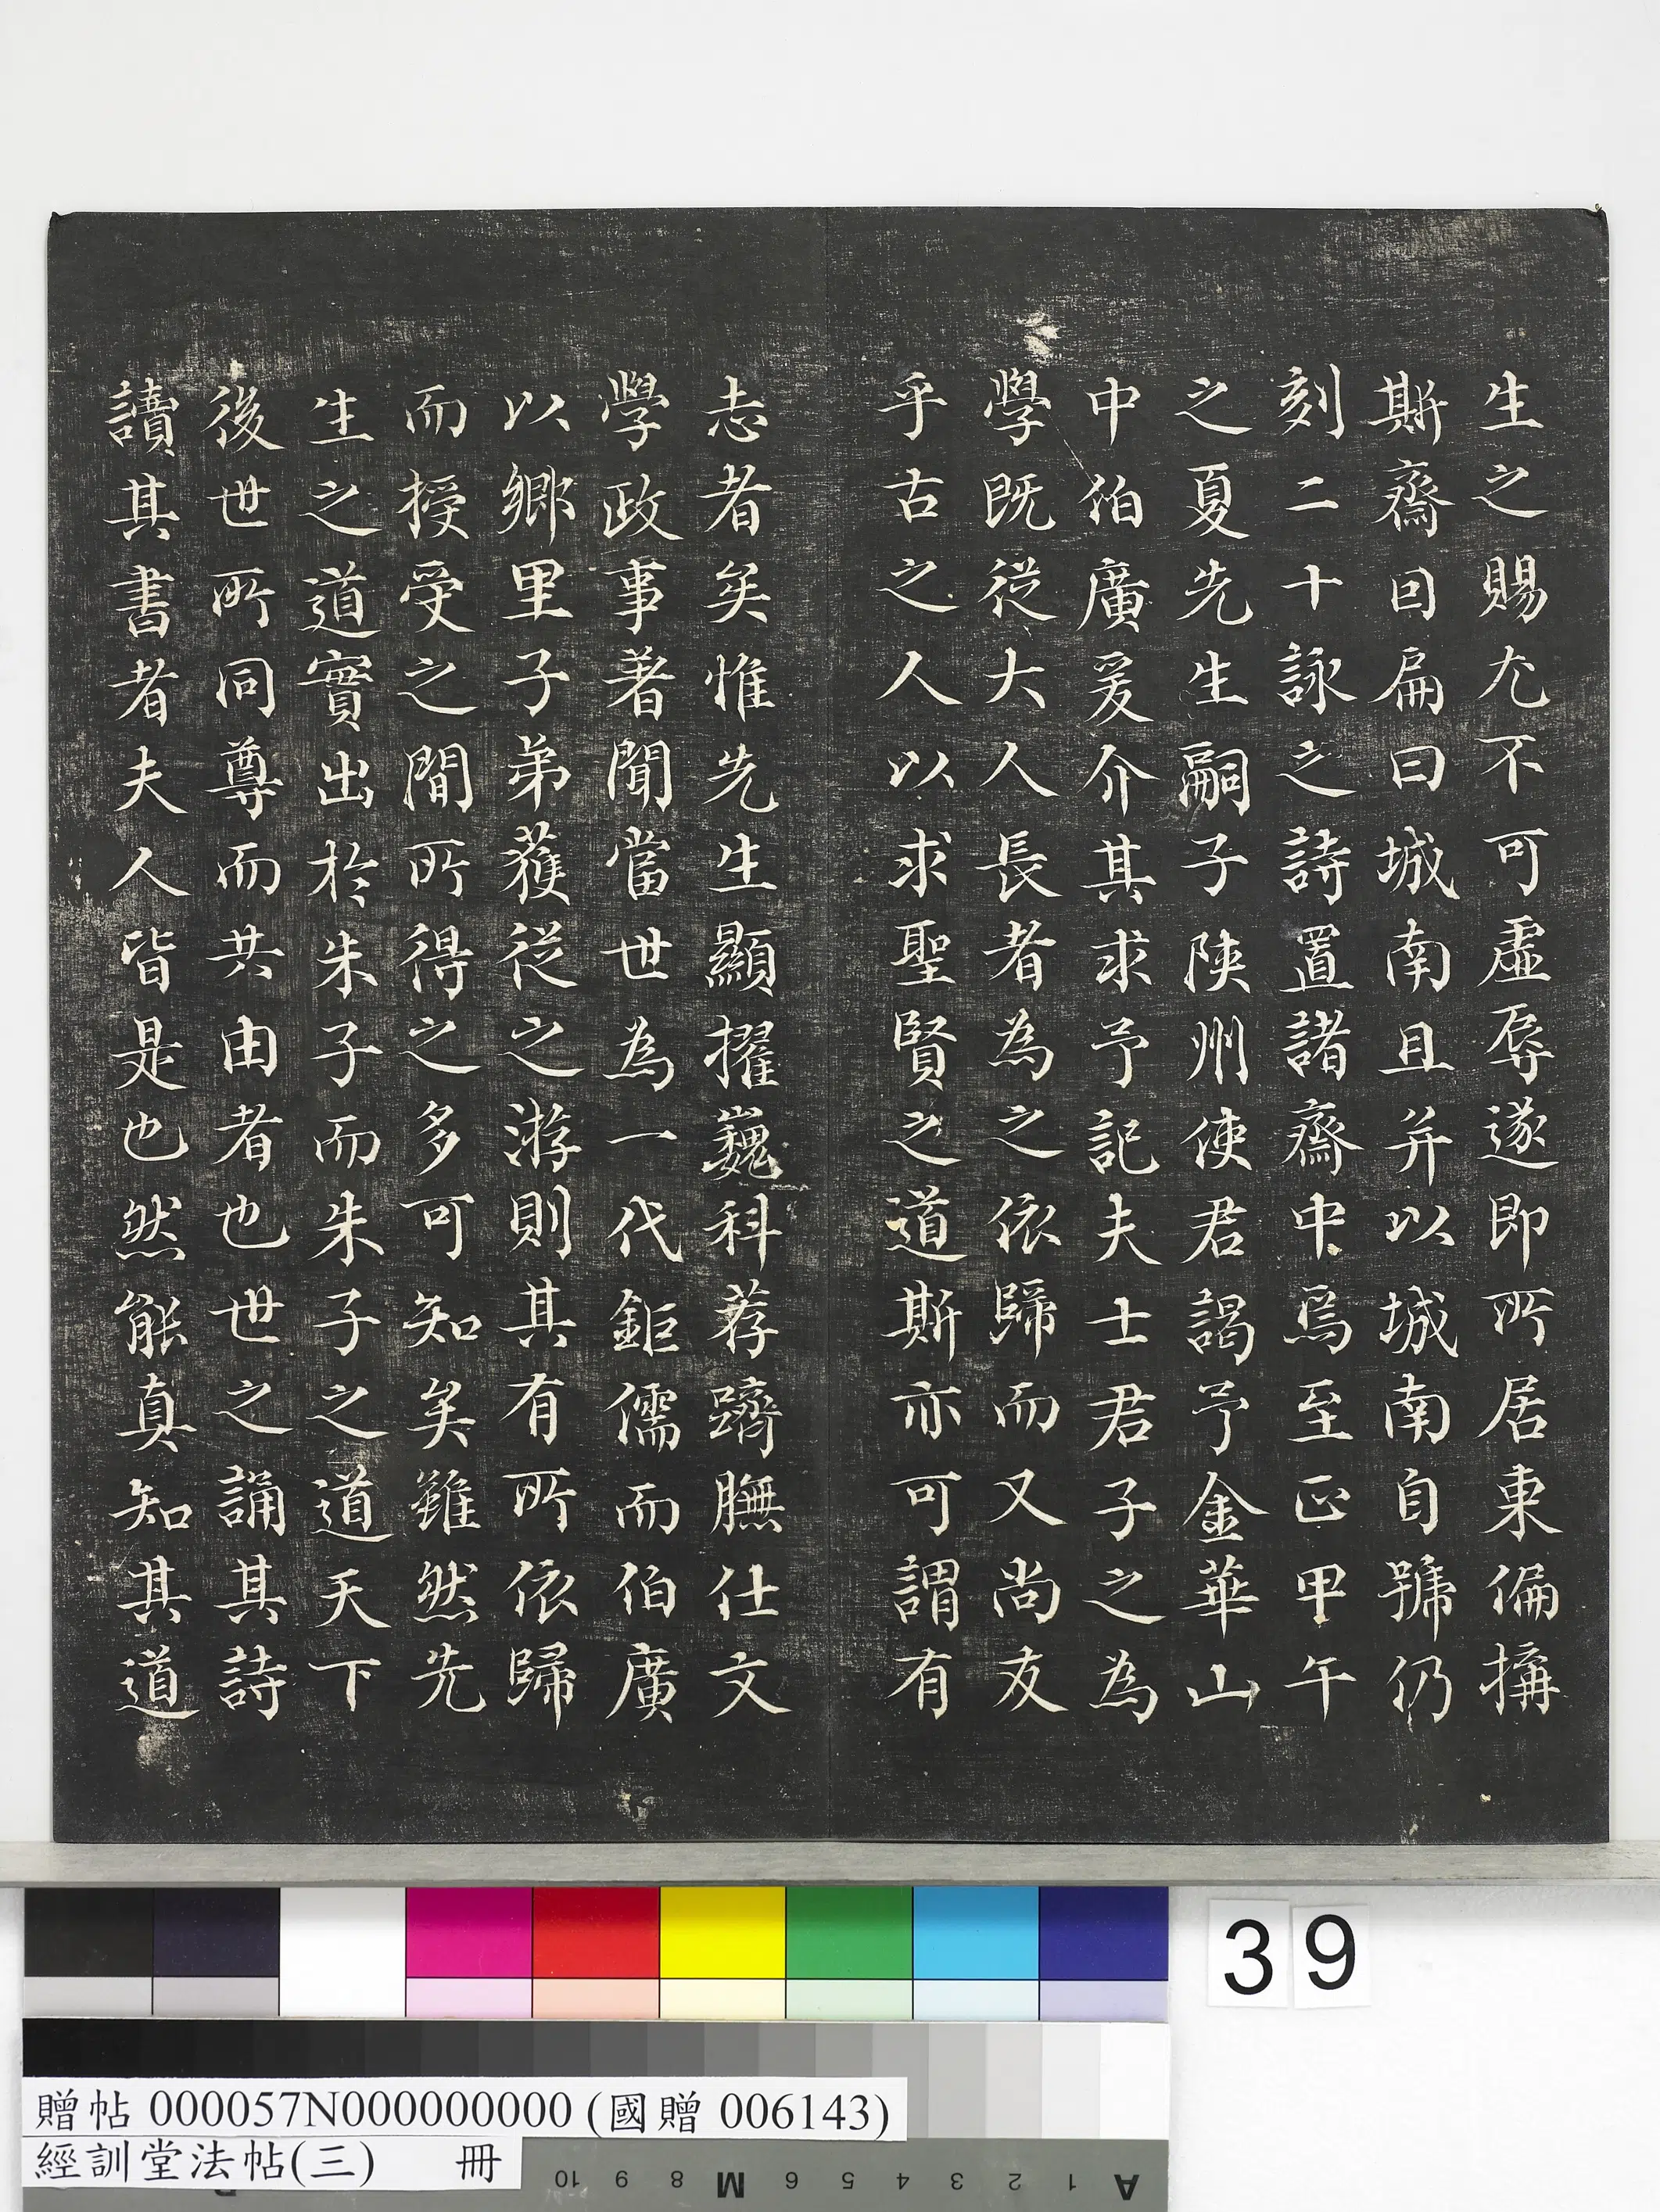 生之賜尤不可虛辱遂即所居東偏搆
斯齋因扁曰城南且并以城南自號仍
刻二十詠之詩置諸齋中焉至正甲午
之夏先生嗣子陝州使君謁予金華山
中伯廣爰介其求予記夫士君子之為
學既從大人長者為之依歸而又尚友
乎古之人以求聖賢之道斯亦可謂有
志者矣惟先生顯擢巍科荐躋膴仕文
學政事著聞當世為一代鉅儒而伯廣
以鄉里子弟獲從之游則其有所依歸
而授受之間所得之多可知矣雖然先
生之道實出於朱子而朱子之道天下
後世所同尊而共由者也世之誦其詩
讀其書者夫人皆是也然能真知其道
39
贈帖 000057N000000000 (國贈 006143)
經訓堂法帖(三) 冊
10 9 8 M 6 5 4 3 2 1 A